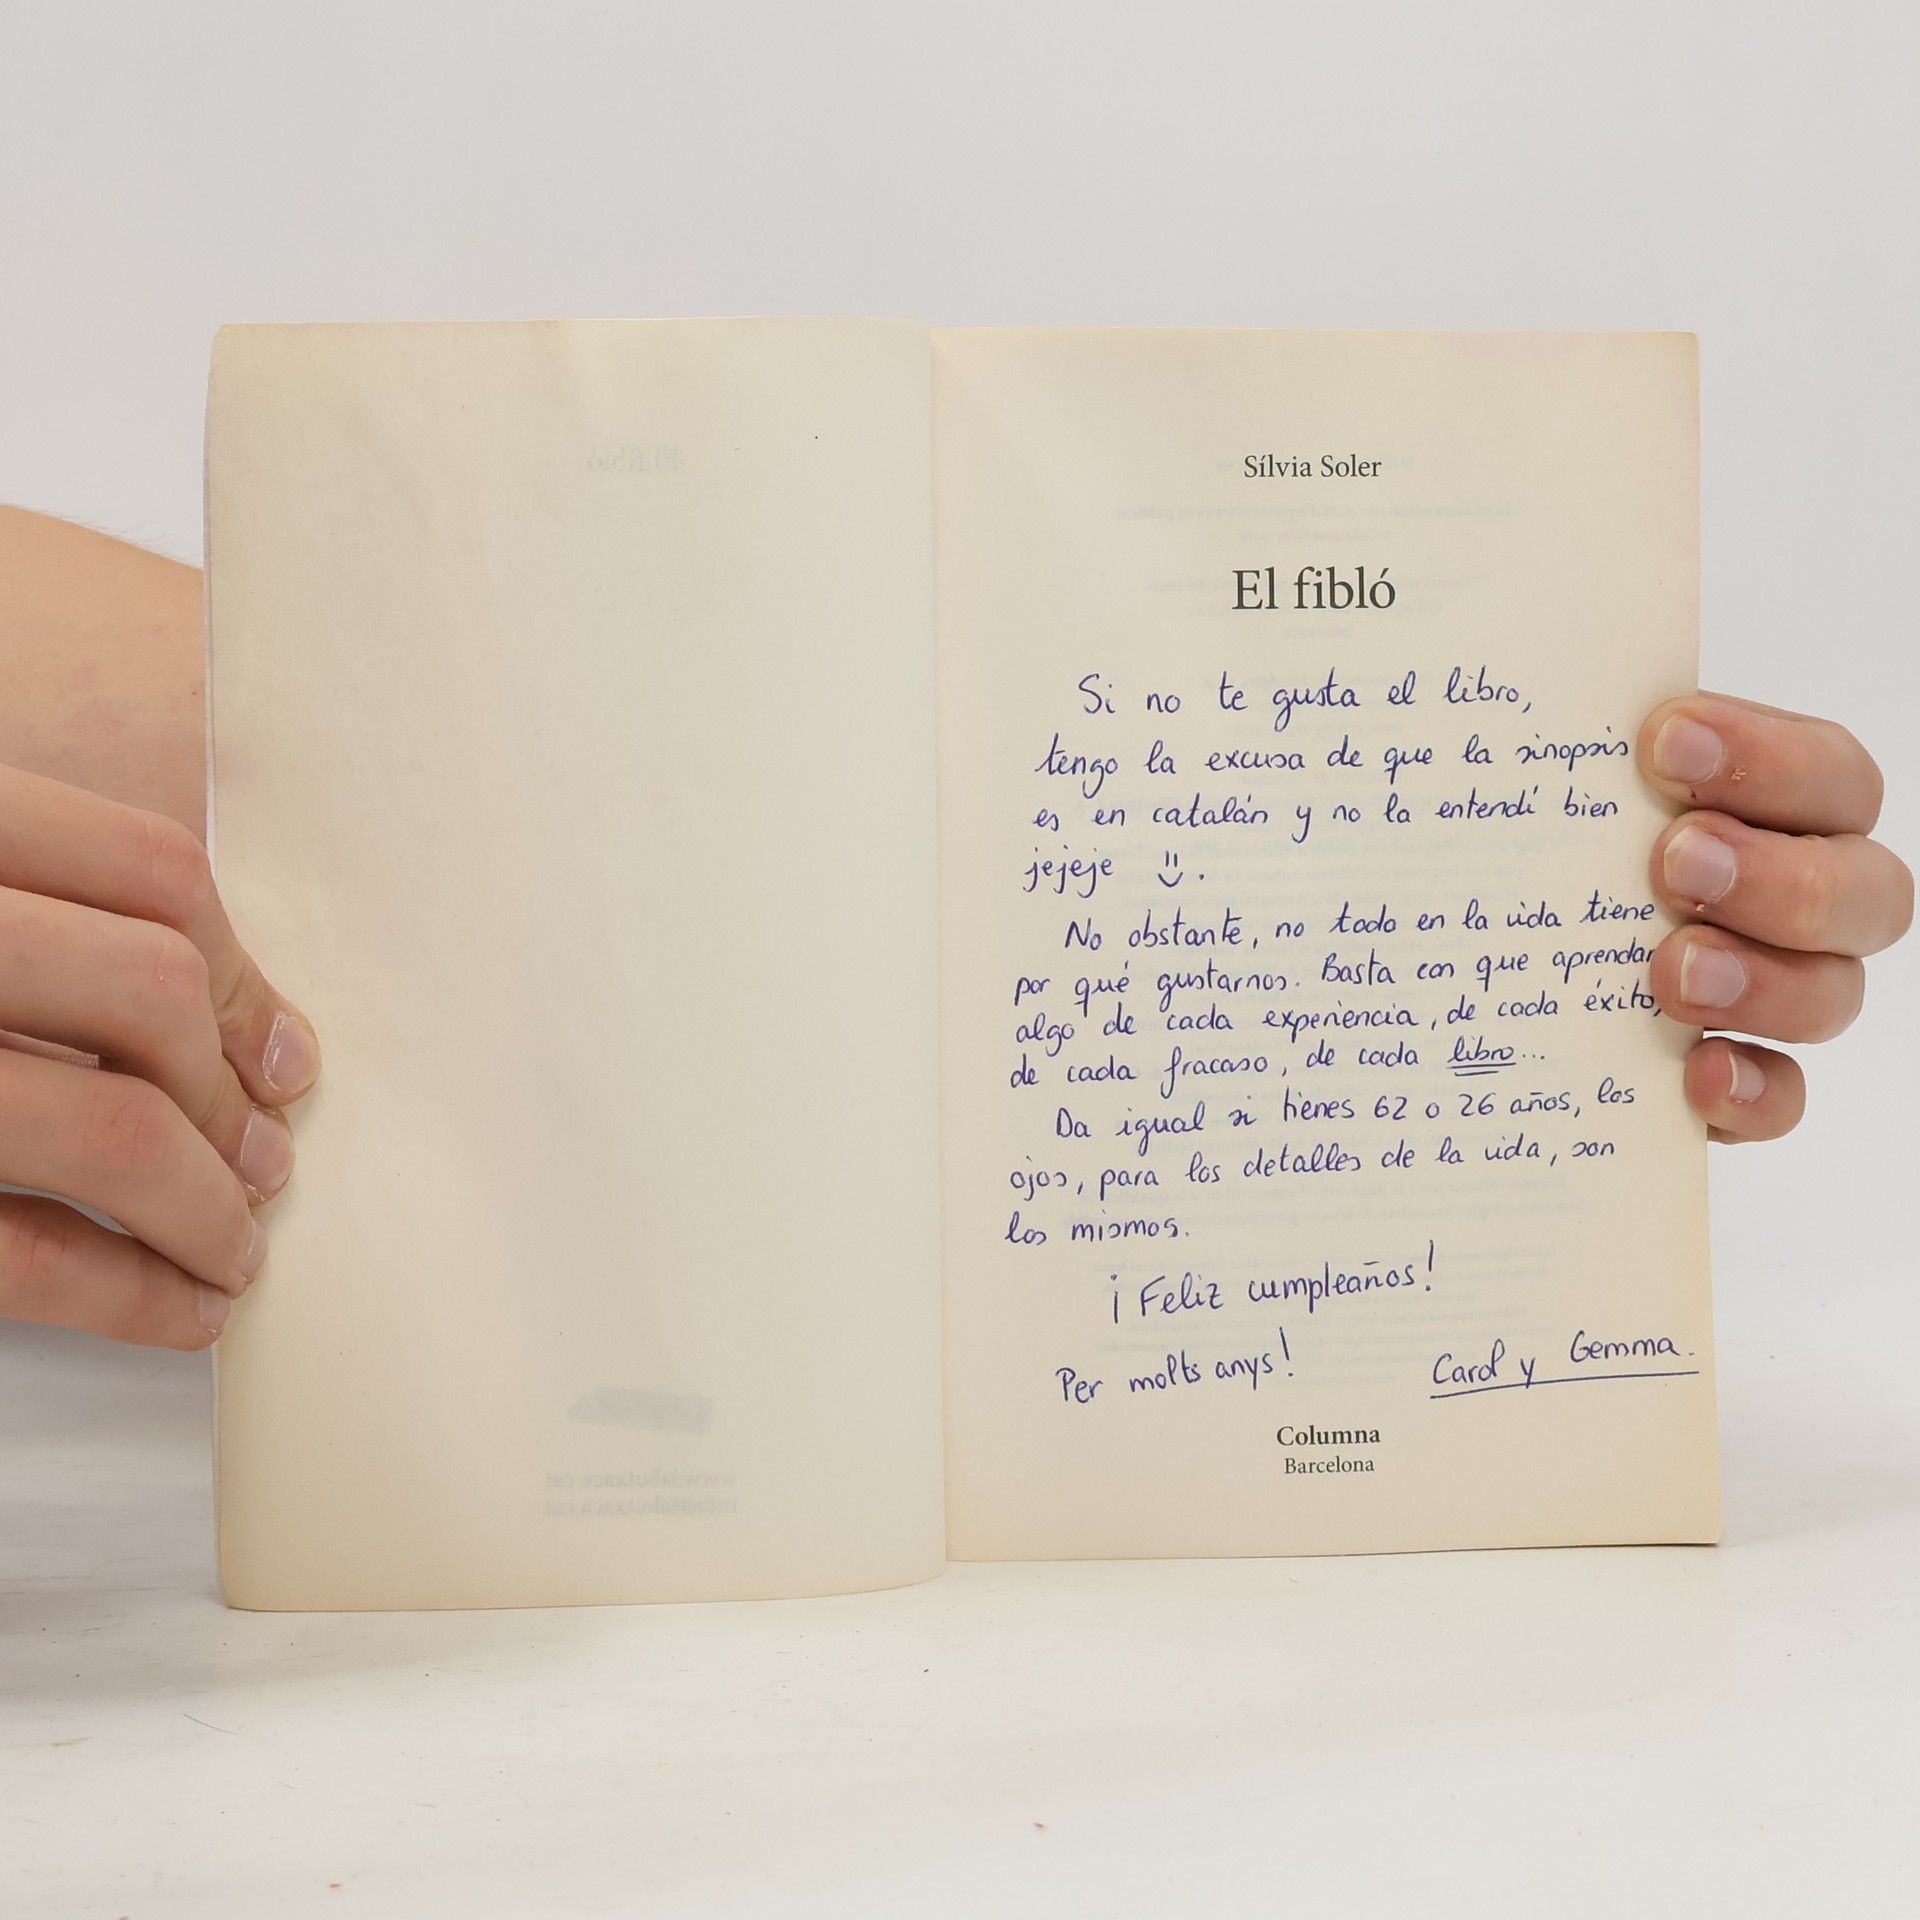 Sílvia Soler
El fibló
Si no te gusta el libro,
tengo la excusa de que la sinopsis
es en catalán y no la entendí bien
jejeje
No obstante, no todo en la vida tiene
por qué gustarnos. Basta con que aprendar
algo de cada experiencia, de cada éxito,
de cada fracaso, de cada libro...
Da igual si tienes 62 o 26 años, los
ojos, para los detalles de la vida, son
los mismos.
¡Feliz cumpleaños!
Per molts anys!
Carol y Gemma.
Columna
Barcelona